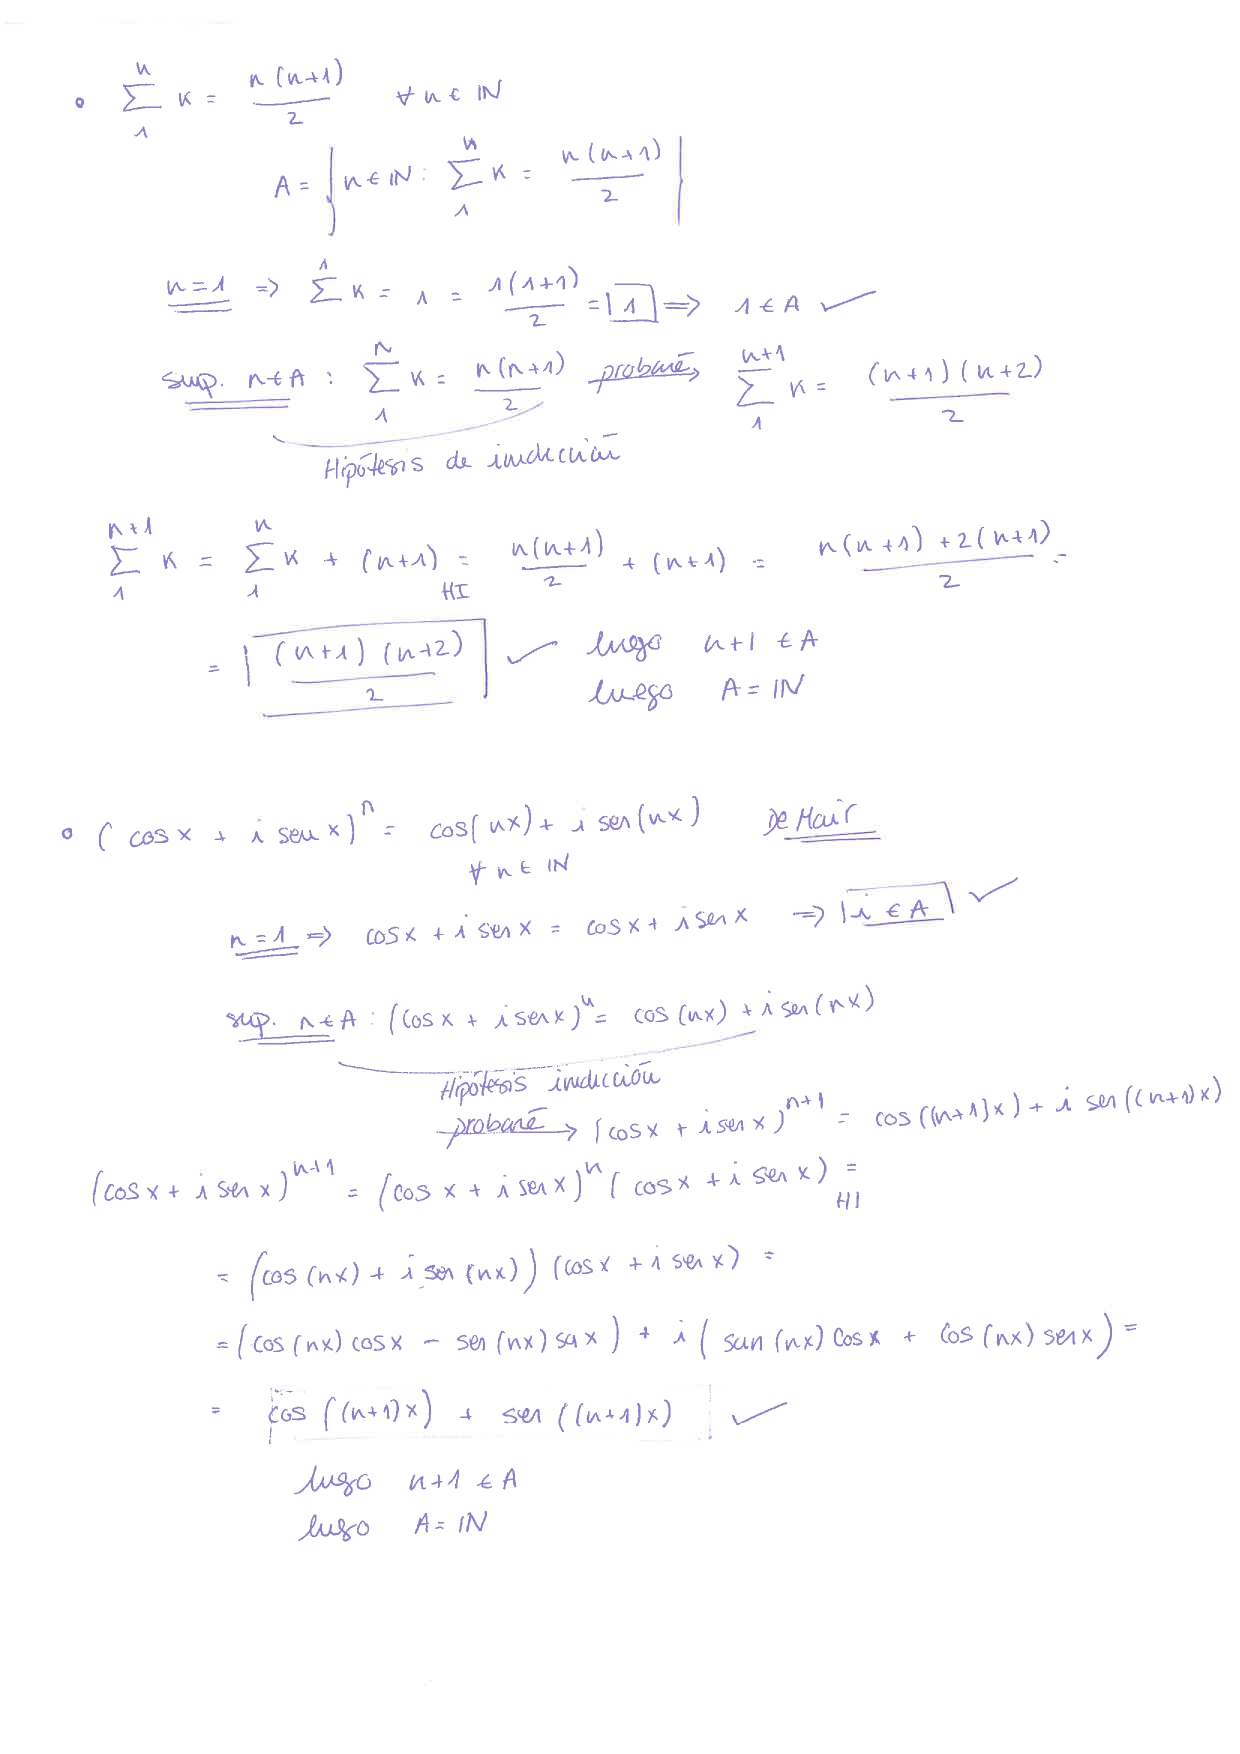 ∘ ∑₁ⁿ K = n(n+1)/2 ∀ n ∈ ℕ
A = { n ∈ ℕ : ∑₁ⁿ K = n(n+1)/2 }
n=1 ⇒ ∑₁¹ K = 1 = 1(1+1)/2 = 1 ⇒ 1 ∈ A ✓
sup. n ∈ A : ∑₁ⁿ K = n(n+1)/2 probaré → ∑₁ⁿ⁺¹ K = (n+1)(n+2)/2
Hipótesis de inducción
∑₁ⁿ⁺¹ K = ∑₁ⁿ K + (n+1) = n(n+1)/2 + (n+1) = n(n+1)+2(n+1)/2 =
HI
= (n+1)(n+2)/2 ✓ lugo n+1 ∈ A
luego A = ℕ
∘ (cos x + i sen x)ⁿ = cos(nx) + i sen(nx) De Moir
∀ n ∈ ℕ
n=1 ⇒ cos x + i sen x = cos x + i sen x ⇒ i ∈ A ✓
sup. n ∈ A : (cos x + i sen x)ⁿ = cos(nx) + i sen(nx)
Hipótesis inducción
probaré → (cos x + i sen x)ⁿ⁺¹ = cos((n+1)x) + i sen((n+1)x)
(cos x + i sen x)ⁿ⁺¹ = (cos x + i sen x)ⁿ (cos x + i sen x) =
HI
= (cos(nx) + i sen(nx)) (cos x + i sen x) =
= (cos(nx) cos x − sen(nx) sen x) + i (sen(nx) cos x + cos(nx) sen x) =
= cos((n+1)x) + sen((n+1)x) ✓
lugo n+1 ∈ A
lugo A = ℕ